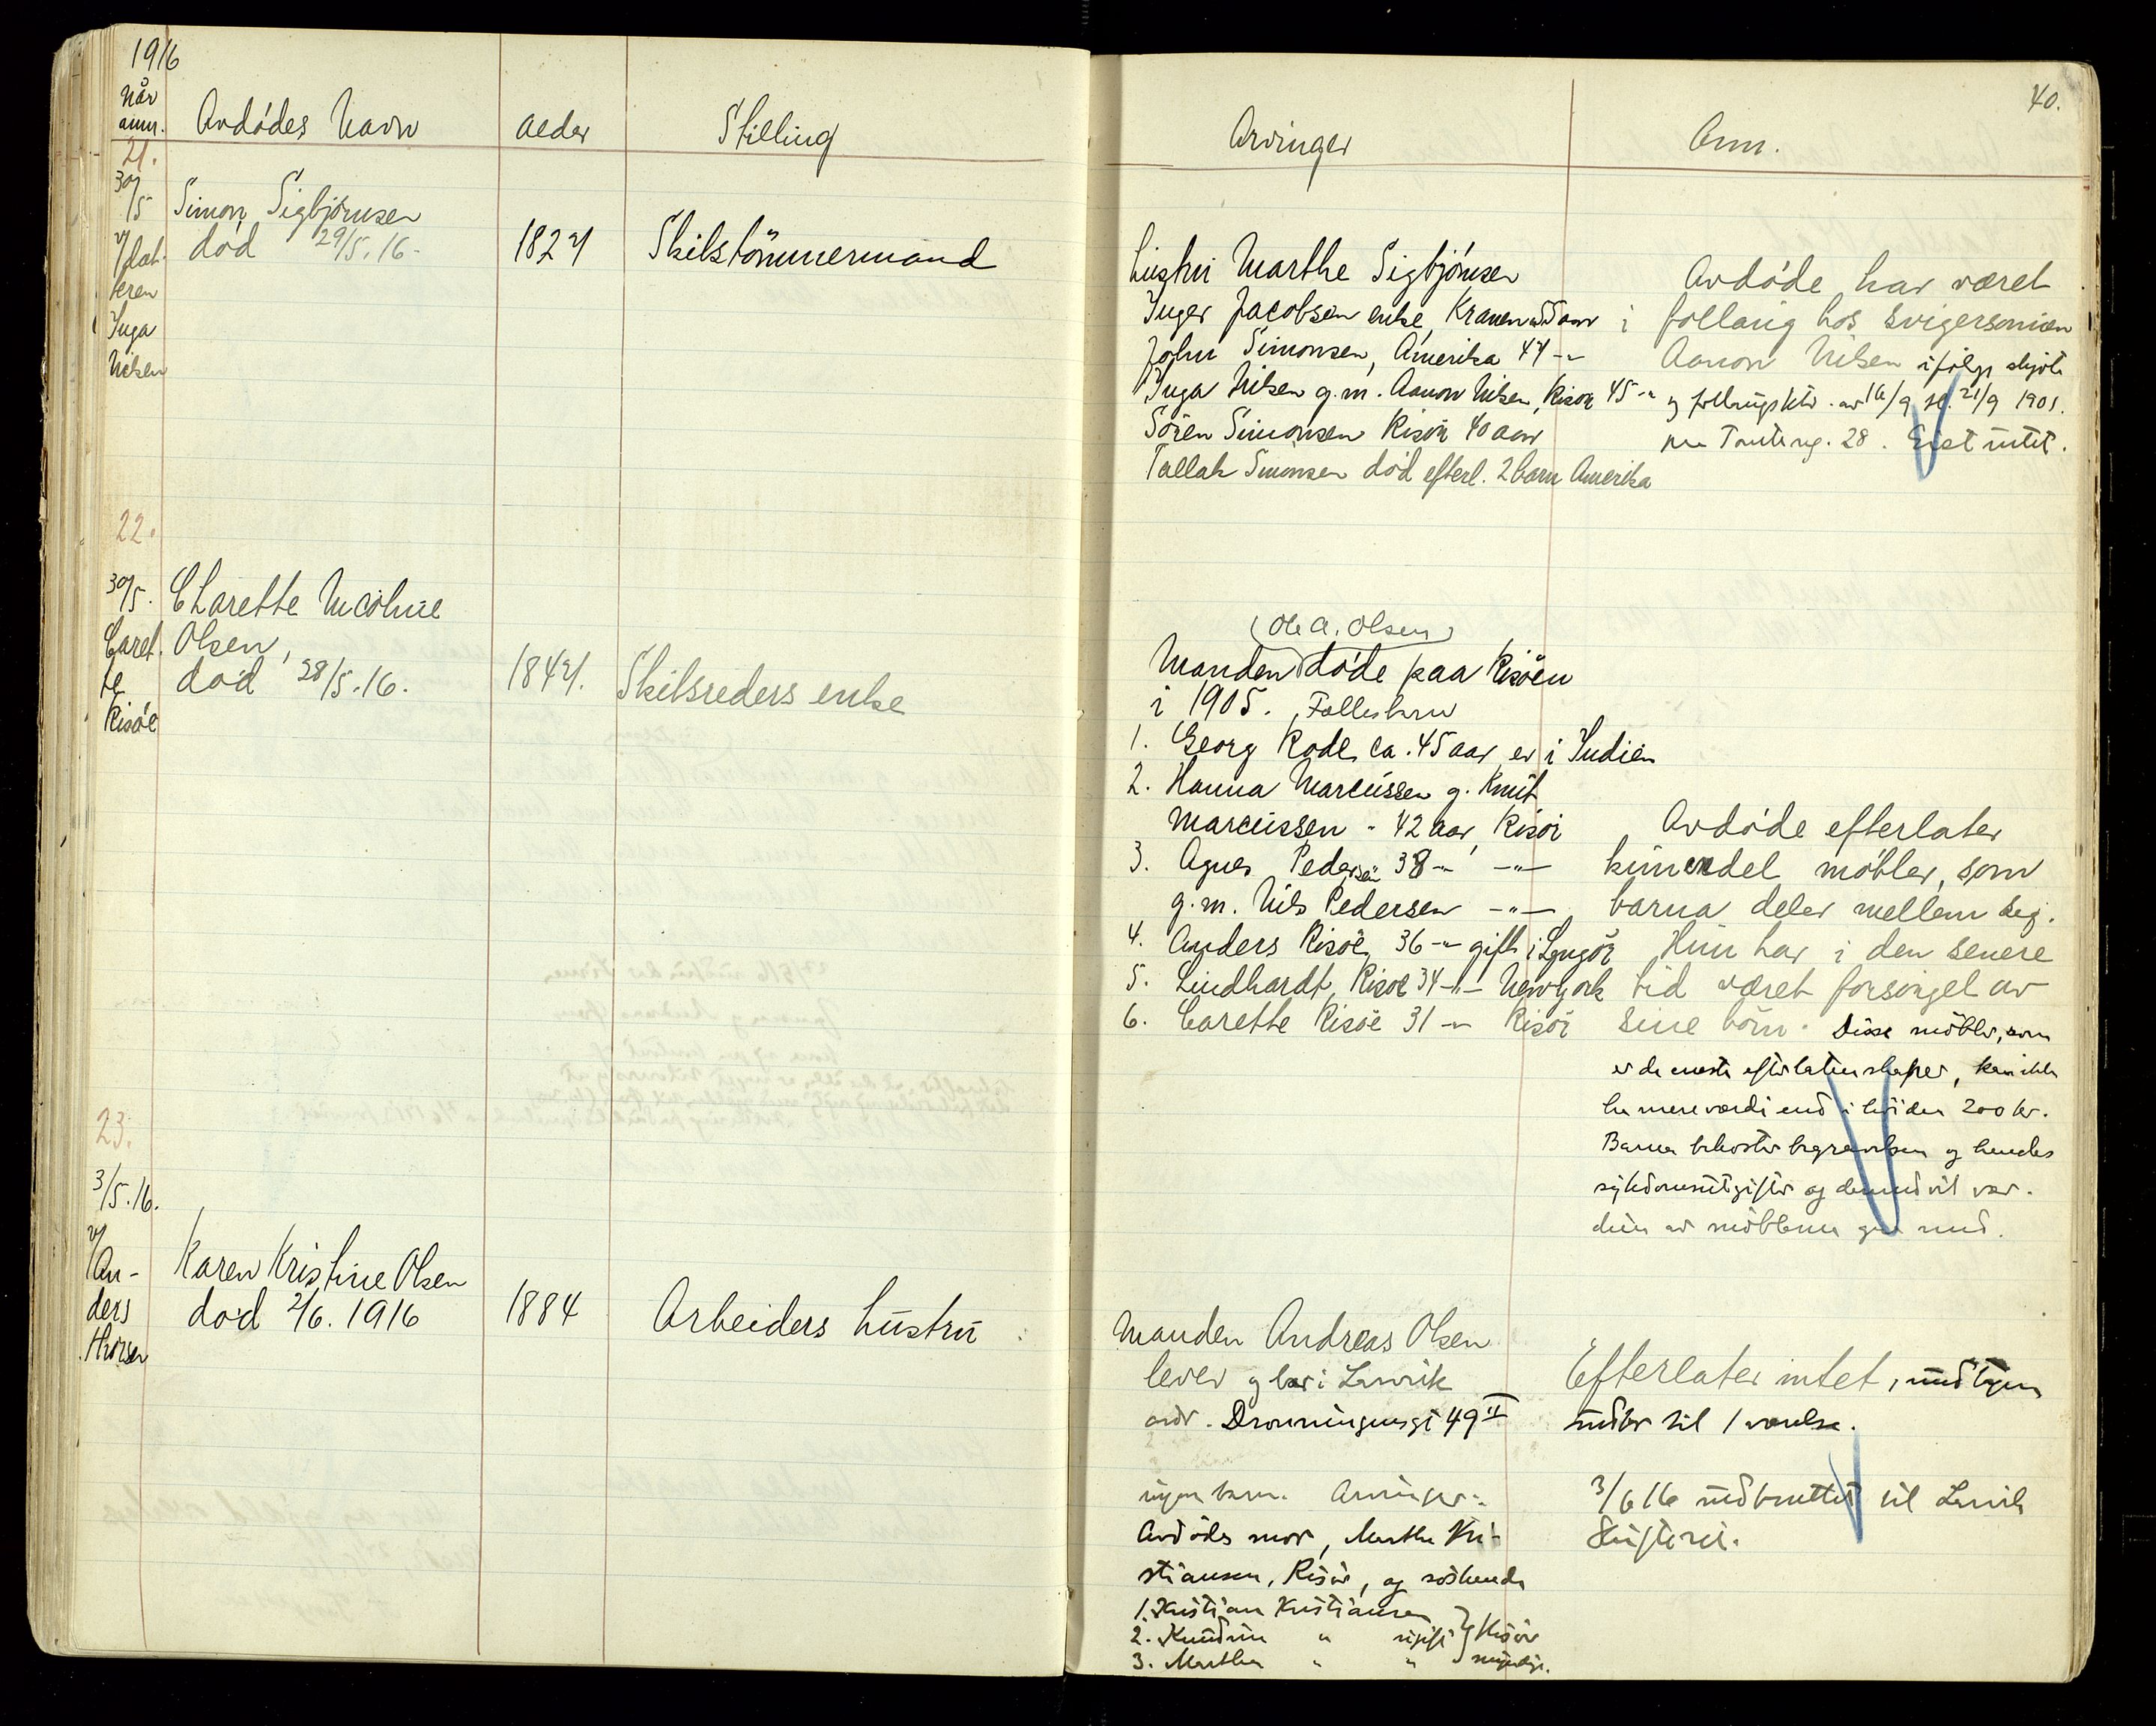 1916
Når
anm.
Avdødes Navn
Alder
Stilling
21.
30/5
v/dat-
teren
Inga
Nilsen
Simon Sigbjørnsen
død 29/5. 16.
1827
Skibstömmermand
22.
30/5.
Caret-
te
Risøe
Charette Nicoline
Olsen,
død 28/5. 16.
1847.
Skibsreders enke
23.
3/5. 16.
v/
An-
ders
Karen Kristine Olsen
død 2/6. 1916
1884
Arbeiders hustru
40.
Arvinger
Anm.
Hustru Marthe Sigbjørnsen
Inger Jacobsen enke,
John Simonsen, Amerika 47 -"-
Inga Nilsen g.m. Aanon Nilsen, Risør 45 -"-
Sören Simonsen Risör 40 aar
Tallak Simonsen død efterl. 2 barn Amerika
Avdøde har været
i follaug hos svigersønnen
Aanon Nilsen ifølge skjøte
og 16/9 21/9 1901.
28. Eiet intet.
(Ole A. Olsen)
Manden døde paa Risøen
i 1905. Fællesbarn
1. Georg Rode, ca. 45 aar, er i Indien
2. Hanna Marcussen g. Knut
Marcussen - 42 aar, Risör
3. Agnes Pedersen 38 -"- -"-
g.m. Nils Pedersen -"-
4. Anders Risöe, 36 -"- gift i Lyngör
5. Lindhardt Risöe 34 -"- Newyork
6. Carette Risöe 31 -"- Risör
Avdøde efterlater
kun endel møbler, som
barna deler mellem seg.
Hun har i den senere
tid været forsörget av
sine børn. Disse møbler, som
er de eneste efterlatenskaper, kan ikke
ha mere værdi end i höiden 200 kr.
Barna bekoster begravelsen og hendes
sykdomsutgifter og dermed vil vær-
dien av møblerne gaa med.
Manden Andreas Olsen
lever og bor i Larvik
adr. Dronningensgt 49 II
ingen barn. Arvinger:
Avdødes mor, Marthe Kri-
stiansen, Risør, og søskende
1. Kristian Kristiansen
2. " ugift } Risør
3. Marthe " " myndige.
Efterlater intet, undtagen
indbo til 1 værelse.
3/6 16 indberettet til Larvik
Skifteret.